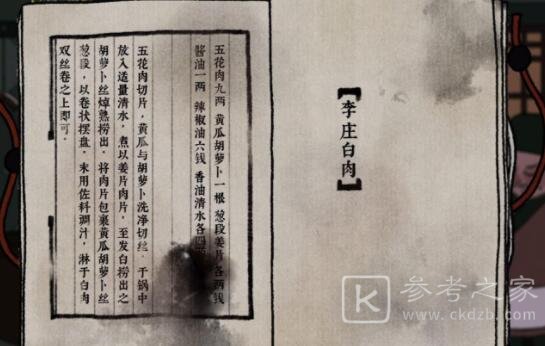 【李庄白肉】
五花肉九两 黄瓜胡萝卜一根 葱段姜片各两钱
酱油一两 辣椒油六钱 香油清水各
五花肉切片，黄瓜与胡萝卜洗净切丝。于锅中
放入适量清水，煮以姜片肉片，至发白捞出之
胡萝卜丝焯熟捞出。将肉片包裹黄瓜胡萝卜丝
葱段，以卷状摆盘，末用佐料调汁，淋于白肉
双丝卷之上即可。
K 参考之家
www.ckdzb.com